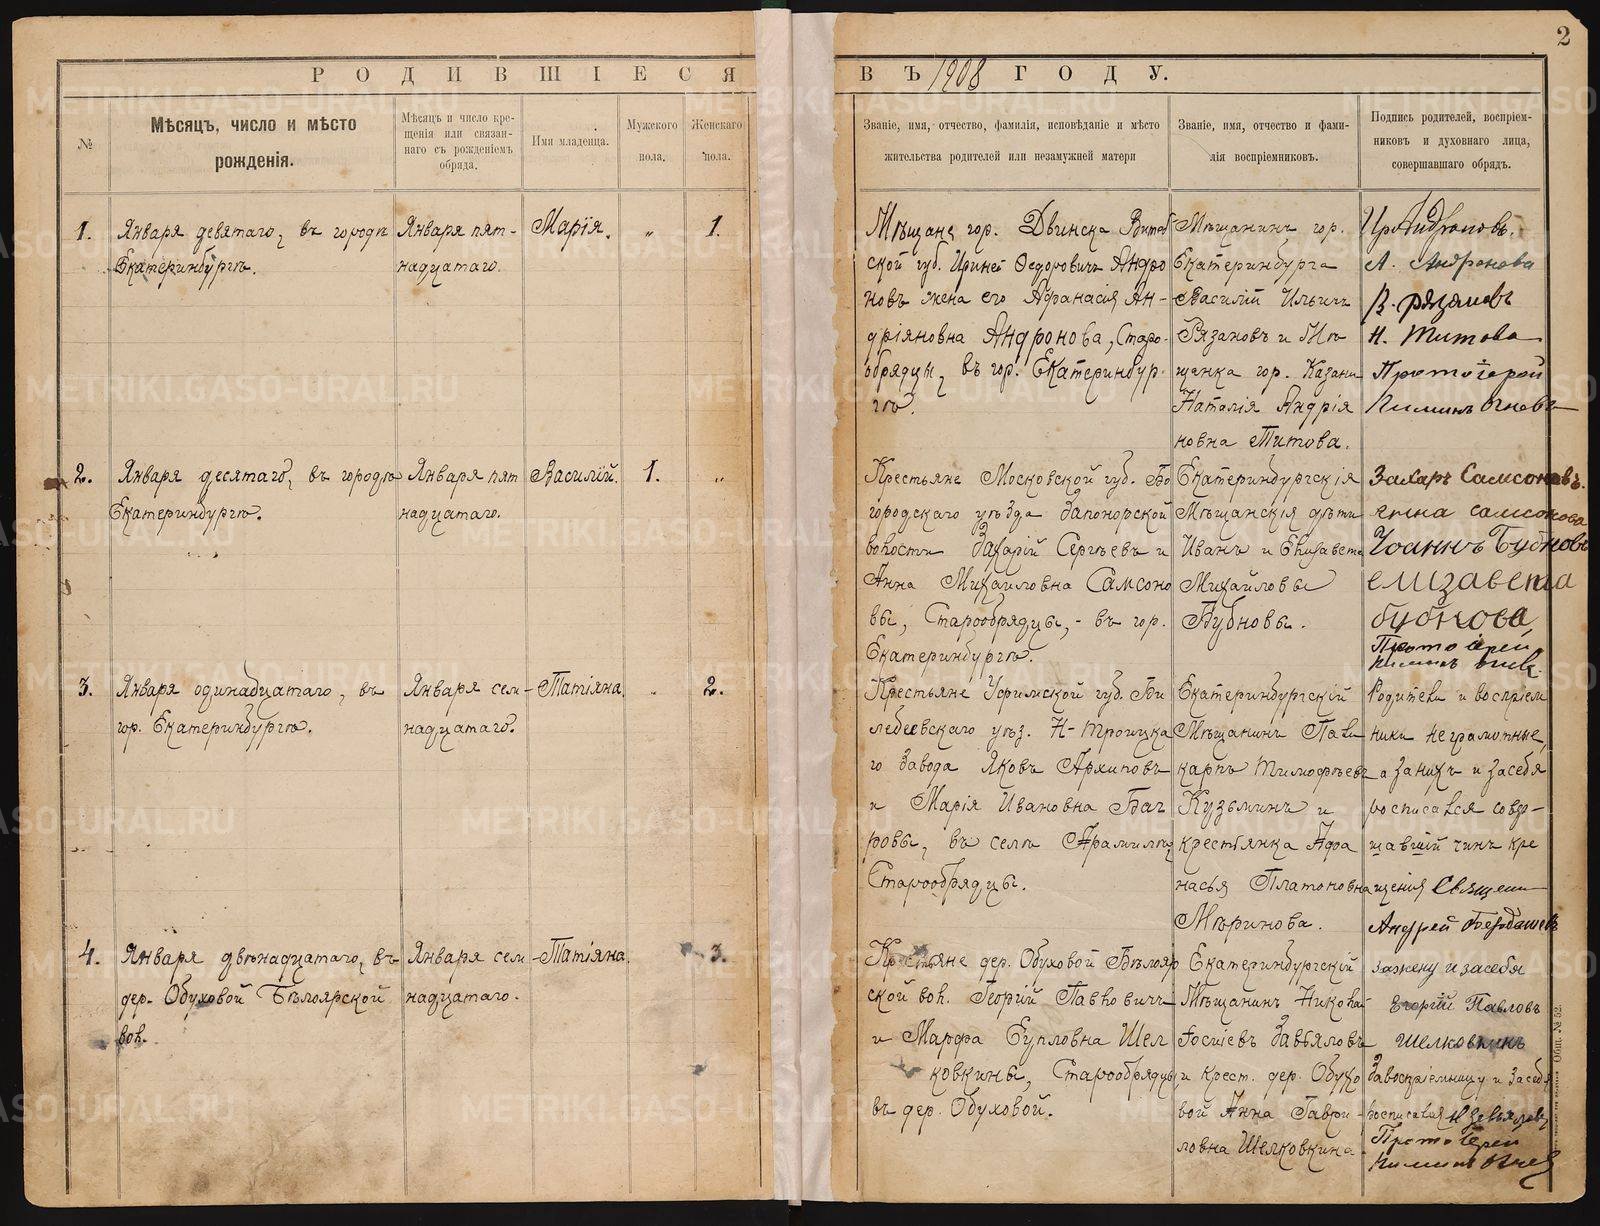 2
РОДИВШІЕСЯ ВЪ 1908 ГОДУ.
№
Мѣсяцъ, число и мѣсто
рожденія.
Мѣсяцъ и число кре-
щенія или связан-
наго съ рожденіемъ
обряда.
Имя младенца.
Мужского
пола.
Женскаго
пола.
Званіе, имя, отчество, фамилія, исповѣданіе и мѣсто
жительства родителей или незамужней матери
Званіе, имя, отчество и фами-
лія воспріемниковъ.
Подпись родителей, воспріем-
никовъ и духовнаго лица,
совершавшаго обрядъ.
1.
Января девятаго, въ городѣ
Екатеринбургѣ.
Января пят-
надцатаго.
Марія.
"
1.
Мѣщане гор. Двинска Витеб
ской губ. Ириней Ѳедоровичъ Андро
новъ жена его Афанасія Ан-
дріяновна Андронова, Старо-
обрядцы, въ гор. Екатеринбур-
гѣ.
Мѣщанинъ гор.
Екатеринбурга
Василій Ильичъ
Рязановъ и Мѣ
щанка гор. Казани
Наталія Андрія
новна Титова.
А. Андронова
В. Рязановъ
Н. Титова
Протоіерей
2.
Января десятаго, въ городѣ
Екатеринбургѣ.
Января пят
надцатаго.
Василій.
1.
"
Крестьяне Московской губ. Бо
городскаго уѣзда Запонорской
волости Захарій Сергѣевъ и
Анна Михаиловна Самсоно
вы, Старообрядцы, - въ гор.
Екатеринбургѣ.
Екатеринбургскія
Мѣщанскія дѣти
Иванъ и Елизавета
Михайловы
Бубновы.
Захаръ Самсоновъ.
анна самсонова
Іоаннъ Бубновъ
елизавета
бубнова
Протоіерей
3.
Января одинадцатаго, въ
гор. Екатеринбургѣ.
Января сем-
надцатаго.
Татіяна.
"
2.
Крестьяне Уфимской губ. Би
лебеевскаго уѣз. Н-Троицка
го Завода Яковъ Архиповъ
и Марія Ивановна Баг
ровы, въ селѣ Арамилѣ,
Старообрядцы.
Екатеринбургскій
Мѣщанинъ Пали
карпъ Тимофѣевъ
Кузьминъ и
крестьянка Афа
насья Платоновна
Мѣринова.
Родители и воспріем
ники неграмотные,
а за нихъ и за себя
росписался совер-
шавшій чинъ кре
щенія Священ
Андрей
4.
Января двѣнадцатаго, въ
дер. Обуховой Бѣлоярской
вол.
Января сем
надцатаго.
Татіяна.
3.
Крестьяне дер. Обуховой Бѣлояр
ской вол. Георгій Павловичъ
и Марфа Еупловна Шел
ковкины, Старообрядцы,
въ дер. Обуховой.
Екатеринбургскій
Мѣщанинъ Николай
Іосиіевъ Завьяловъ
и крест. дер. Обухо
вой Анна Гаври-
ловна Шелковкина
За жену и за себя
Егорій Павловъ
Шелковкинъ
За воспріемницу и за себя
росписался Н Завьяловъ
Протоіерей
Общ. № 52.
METRIKI.GASO-URAL.RU